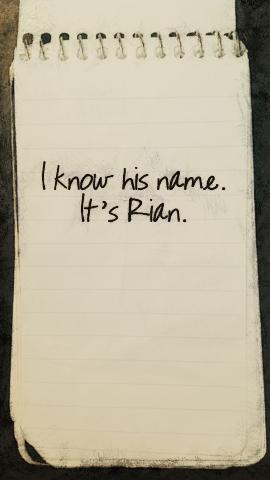 I know his name.
It's Rian.